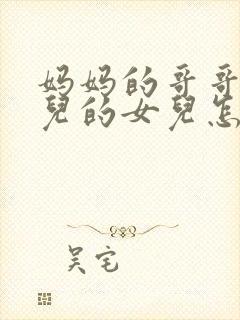 妈妈的哥哥
兒的女兒怎
吴宅